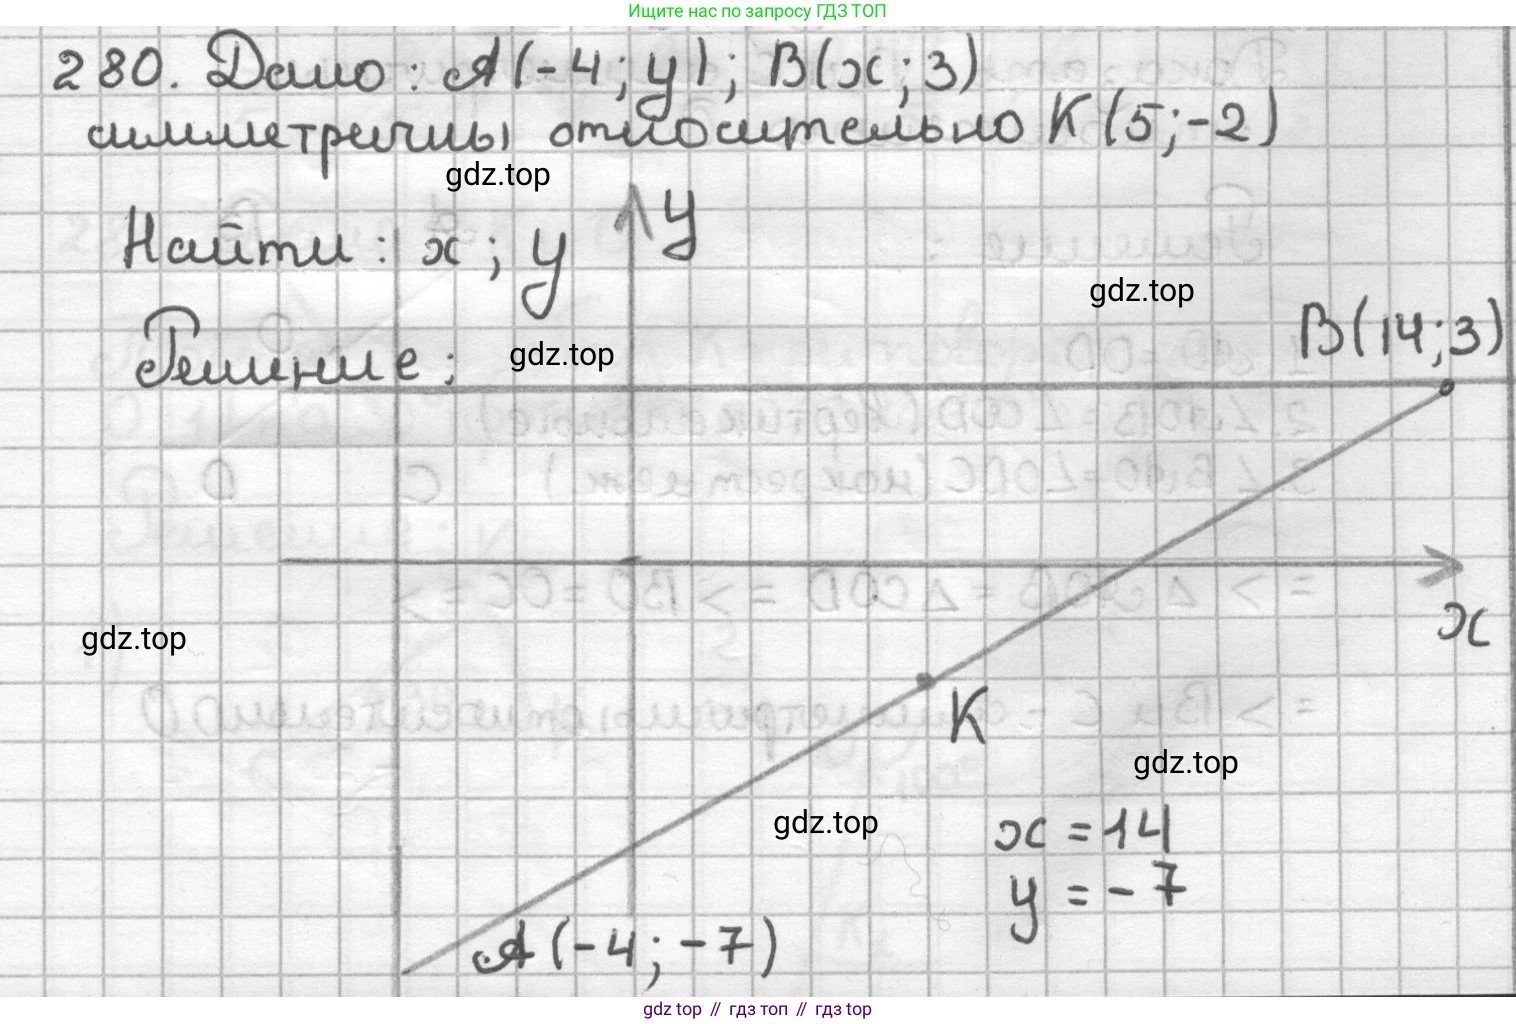 Ищите нас по запросу ГДЗ ТОП
280. Дано: A(-4; y); B(x; 3)
симметричны относительно K(5;-2)
gdz.top
Найти: x; y
y
gdz.top
B(14;3)
Решение:
gdz.top
x
gdz.top
K
gdz.top
gdz.top
x = 14
y = -7
A(-4; -7)
gdz top // гдз топ // gdz top